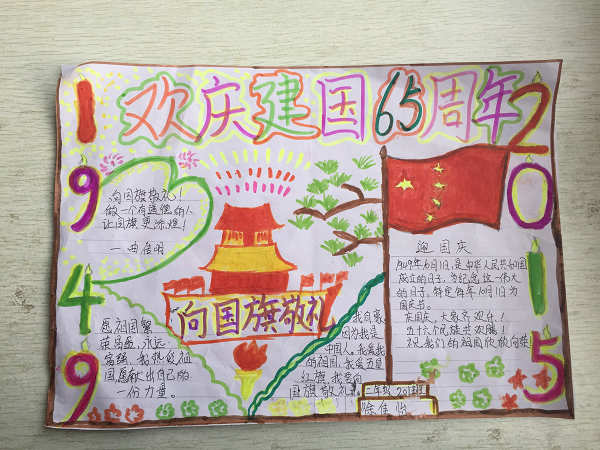 欢庆建国65周年
1949
2015
向国旗敬礼！
做一个有道德的人
让国旗更添辉！
愿祖国繁
荣昌盛，永远
富强，我热爱祖
国愿献出自己的
一份力量。
向国旗敬礼
我自豪，
因为我是
中国人。我爱我
的祖国，我爱五星
红旗，我要向
国旗敬礼。
迎国庆
1949年10月1日，是中华人民共和国
成立的日子，为纪念这一伟大
的日子。特定每年10月1日为
国庆节。
庆国庆，大家齐欢乐！
五十六个民族共欢腾！
祝我们的祖国欣欣向荣！